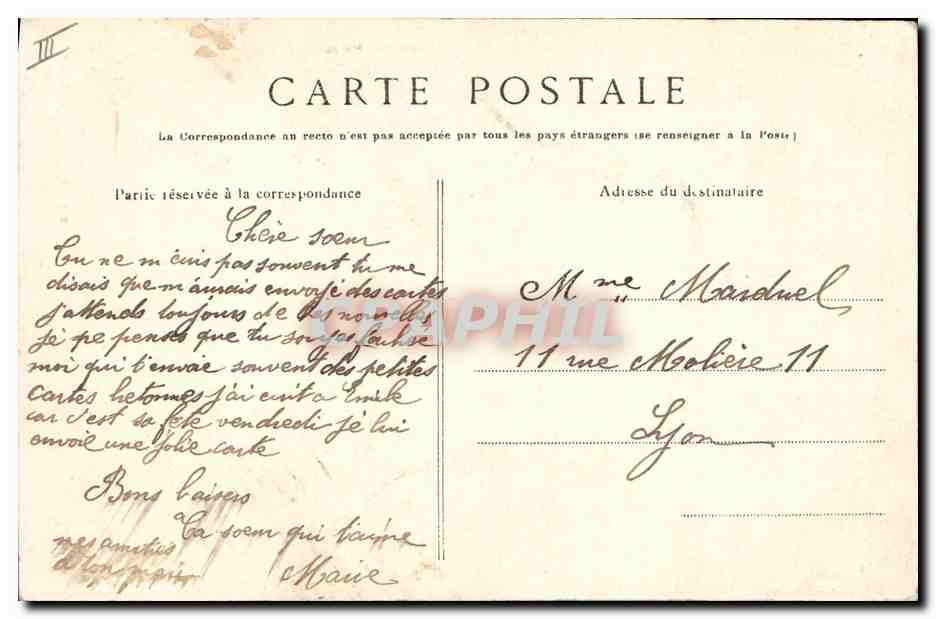 III
CARTE POSTALE
La Correspondance au recto n'est pas acceptée par tous les pays étrangers (se renseigner a la Poste)
Partie réservée à la correspondance
Chère sœur
Tu ne m'ecris pas souvent tu me
disais que m'aurais envoyé des cartes
j'attends toujours de tes nouvelles
je pe penses que tu soyes fachse
moi qui t'envoie souvent des petites
cartes betonnes j'ai ecrit a Emile
car c'est sa fete vendredi je lui
envoie une jolie carte
Bons baisers
Ta soeur qui t'aime
mes amities
a ton mari
Marie
Adresse du destinataire
Mme Marduel
11 rue Molière 11
Lyon
CPAPHIL